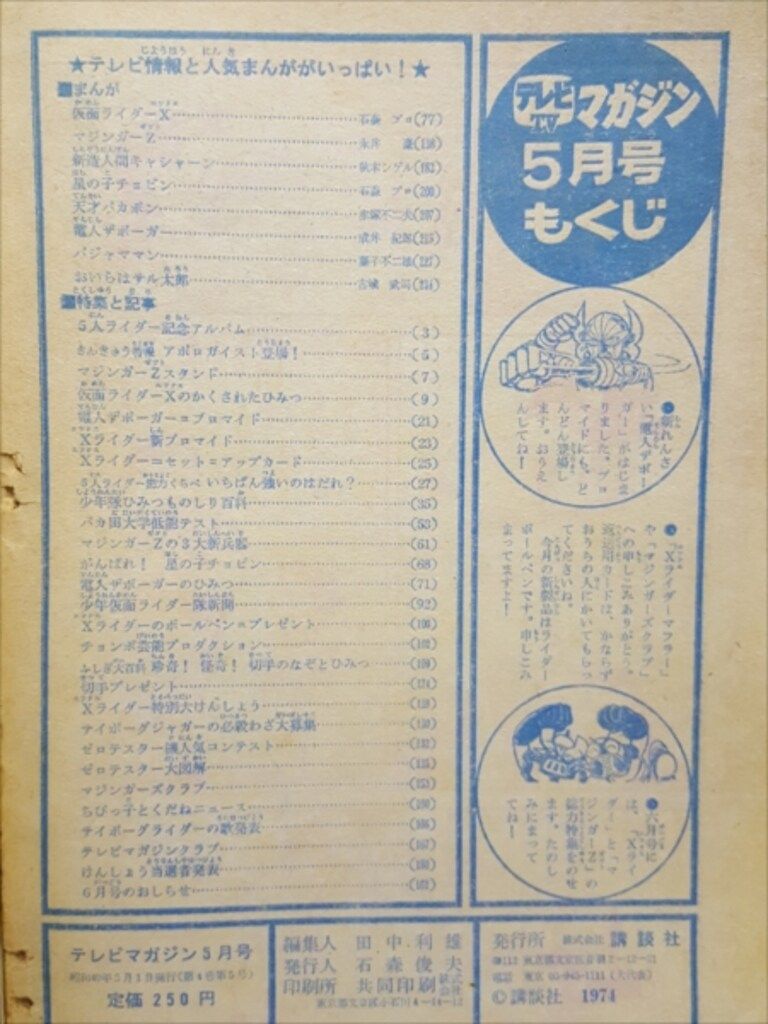 ★テレビ情報と人気まんががいっぱい！★
まんが
仮面ライダーX 石森 プロ(77)
マジンガーZ 永井 豪
新造人間キャシャーン
星の子チョビン 石森 プロ(200)
天才バカボン 赤塚不二夫
電人ザボーガー
バジャママン 藤子不二雄
おいらはサル太郎 古城 武司
特集と記事
5人ライダー記念アルバム (3)
さんきゅう情報 アポロガイスト登場！ (5)
マジンガーZスタンド (7)
仮面ライダーXのかくされたひみつ (9)
電人ザボーガー＝ブロマイド (21)
Xライダー新ブロマイド (23)
Xライダー＝セット＝アップカード (25)
5人ライダー能力くらべ いちばん強いのはだれ？ (27)
少年隊ひみつものしり百科 (35)
バカ田大学低能テスト (53)
マジンガーZの3大新兵器 (61)
がんばれ！ 星の子チョビン (68)
電人ザボーガーのひみつ (71)
少年仮面ライダー隊新聞 (92)
Xライダーのボールペン＝プレゼント (100)
チョンボ芸能プロダクション (102)
ふしぎ大百科 珍奇！ 怪奇！ 切手のなぞとひみつ (109)
切手プレゼント
Xライダー特別大けんしょう
サイボーグジャガーの必殺わざ大募集
ゼロテスター超人気コンテスト
ゼロテスター大図解
マジンガーズクラブ
ちびっ子とくだねニュース
サイボーグライダーの歌発表
テレビマガジンクラブ
けんしょう当選者発表
6月号のおしらせ
テレビマガジン
5月号
もくじ
●新れんさ
い『電人ザボー
ガー』がはじま
りました。ブロ
マイドにも、ど
んどん登場し
ます。おうえ
んしてね！
●『Xライダーマフラー』
や『マジンガーズクラブ』
への申しこみありがとう。
返送用カードは、かならず
おうちの人にかいてもらっ
てくださいね。
今月の新製品はライダー
ボールペンです。申しこみ
まってますよ！
●六月号に
は、『Xライ
ダー』と『マ
ジンガーZ』の
総力特集をのせ
ます。たのし
みにまって
てね！
テレビマガジン5月号
昭和49年5月1日発行(第4巻第5号)
定価 250円
編集人 田中利雄
発行人 石森俊夫
印刷所 共同印刷株式会社
東京都文京区小石川4-14-12
発行所 株式会社 講談社
〒112 東京都文京区音羽2-12-21
電話 東京 03-945-1111(大代表)
©講談社 1974